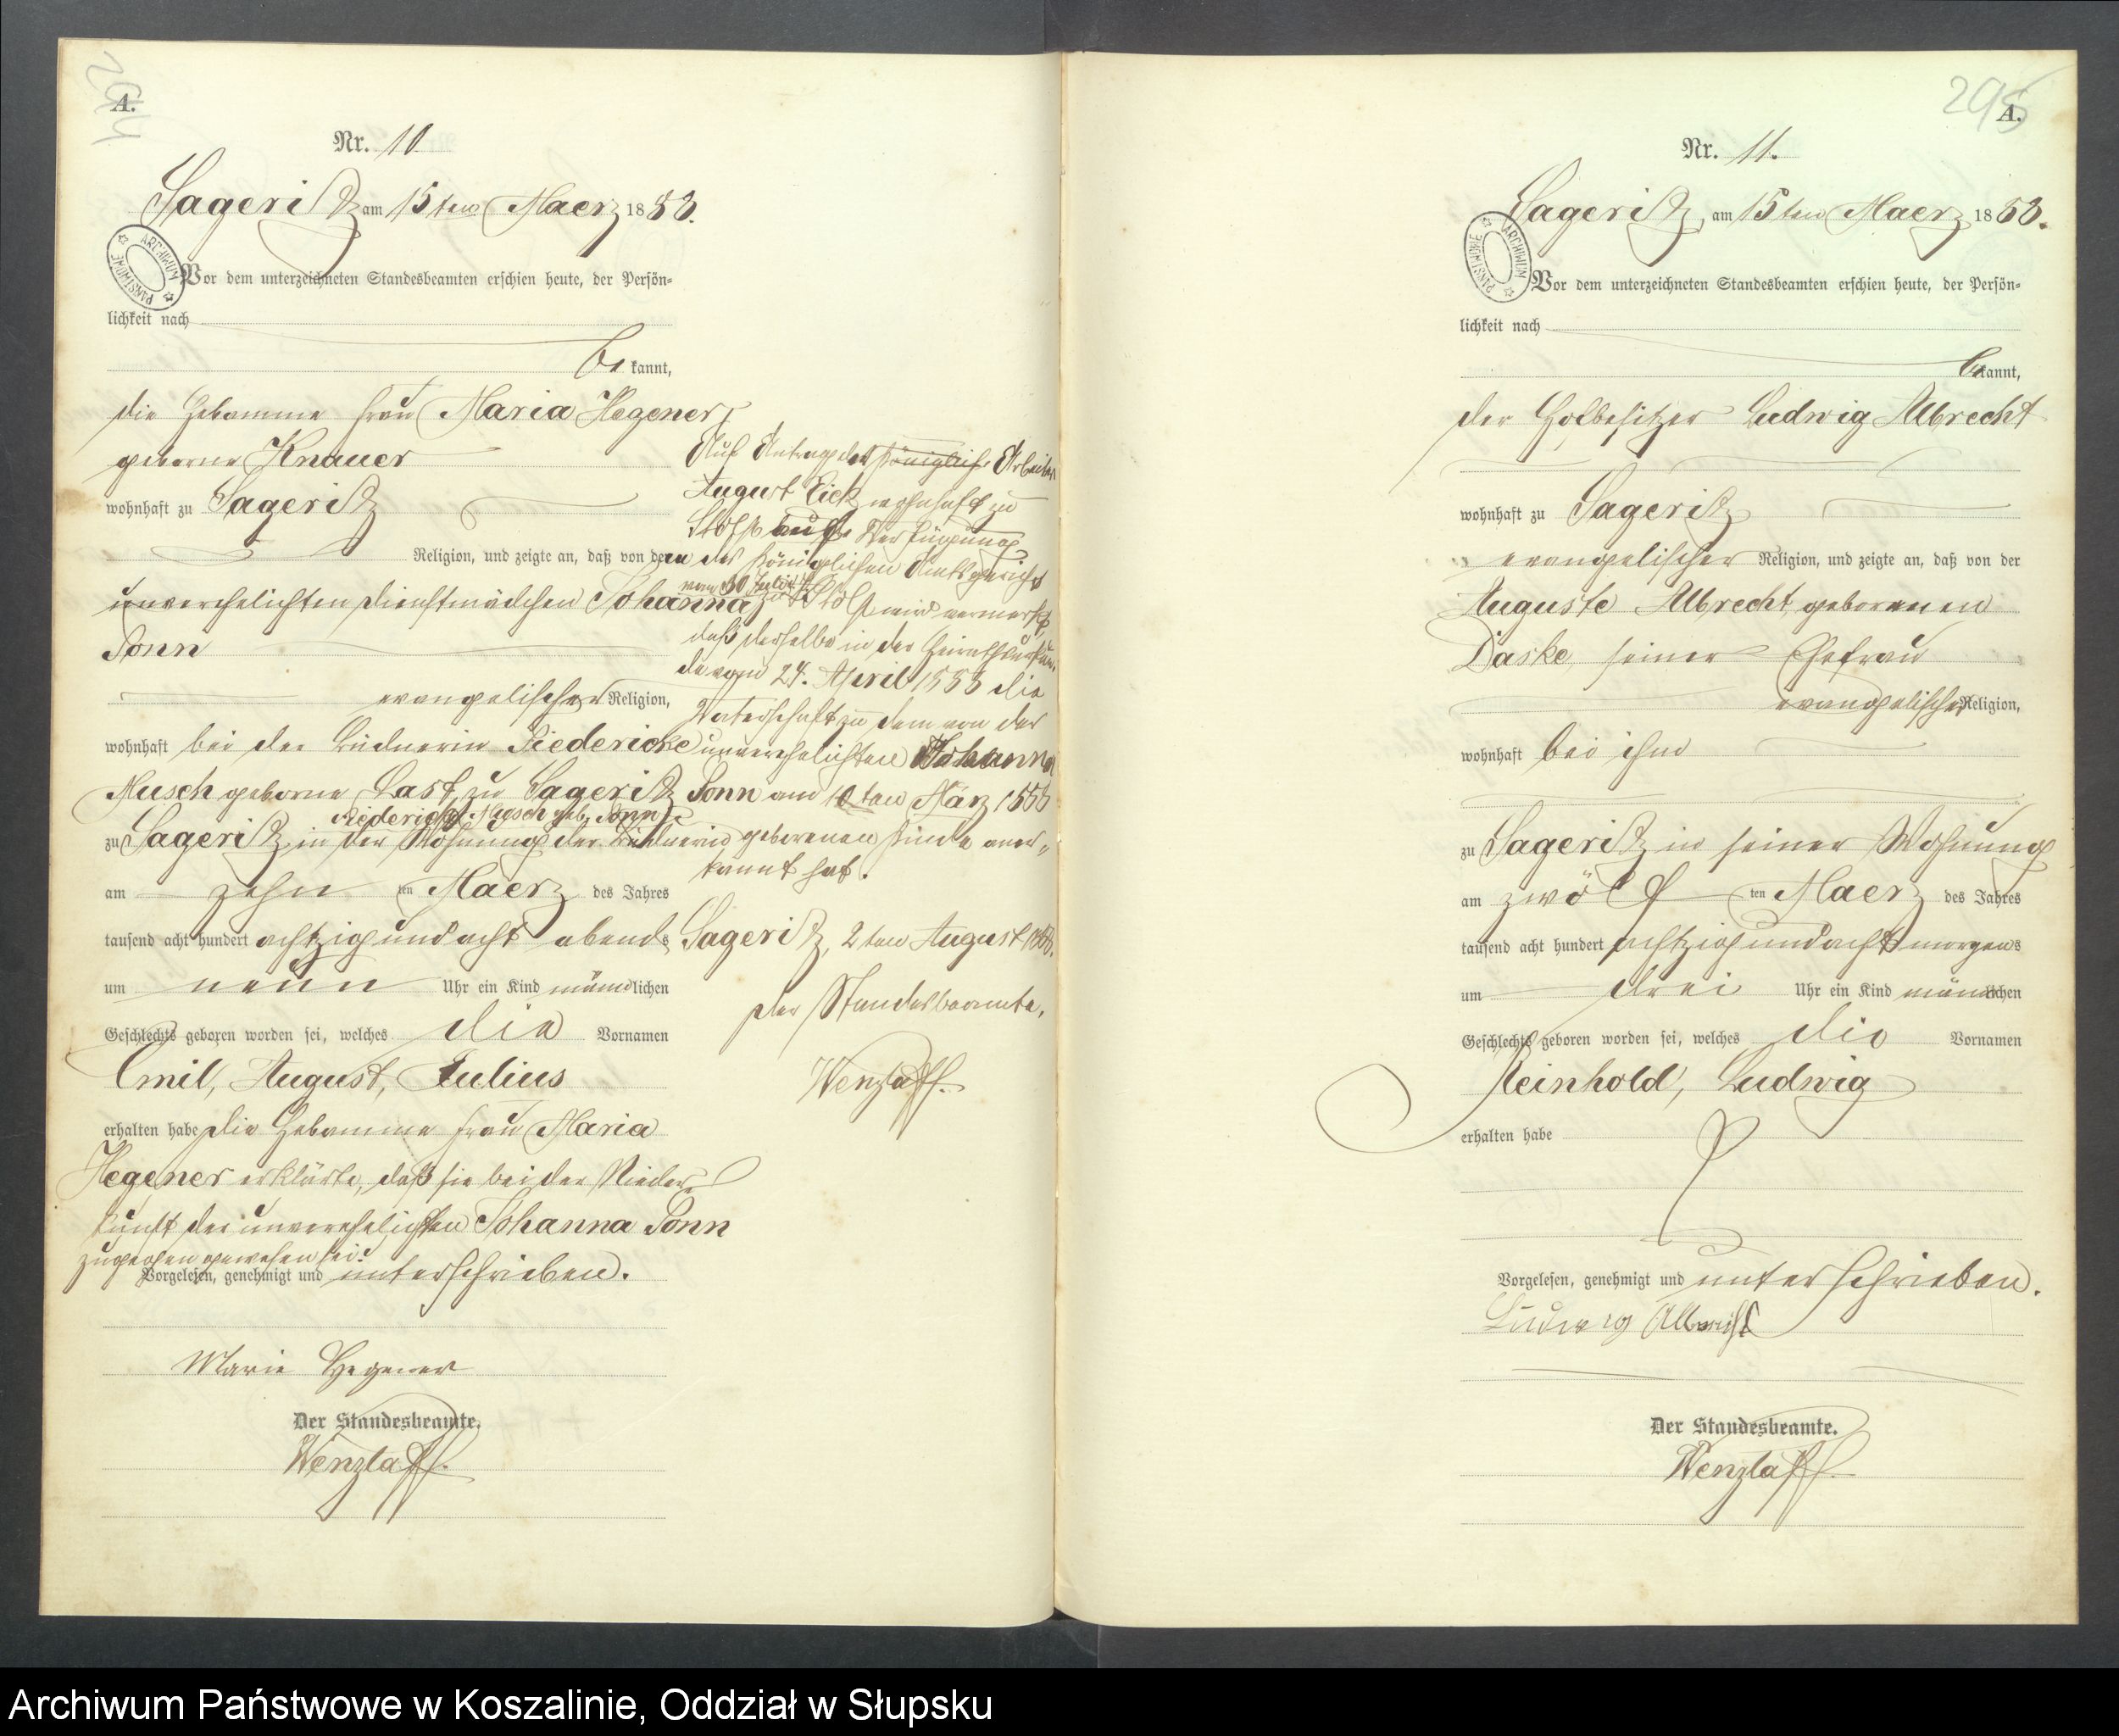 294
A.
Nr. 10
Sageritz am 15ten Maerz 1888.
ARCHIWUM PAŃSTWOWE
Vor dem unterzeichneten Standesbeamten erschien heute, der Persön-
lichkeit nach
be kannt,
die Hebamme Frau Maria Hegener,
geborne Knauer
wohnhaft zu Sageritz
Religion, und zeigte an, daß von dem
unverehelichten Dienstmädchen Johanna
Ponn
evangelischer Religion,
wohnhaft bei der Büdnerin Riedericke
Musch geborne Last, zu Sageritz
Riedericke Musch geb. Ponn
zu Sageritz, in der Wohnung der Büdnerin
am zehn ten Maerz des Jahres
tausend acht hundert achtzig und acht abends
um neun Uhr ein Kind männlichen
Geschlechts geboren worden sei, welches die Vornamen
Emil, August, Julius
erhalten habe die Hebamme Frau Maria
Hegener erklärte, daß sie bei der Nieder-
kunft der unverehelichten Johanna Ponn
zugegen gewesen sei.
Vorgelesen, genehmigt und unterschrieben.
Marie Hegener
Der Standesbeamte.
Wenzlaff.
Auf Antrag des Königlich. Arbeiter
August Eick wohnhaft zu
Stolp auf Verfügung
des Königlichen Amtsgericht
vom 30 Julius
zu Stolp wird vermerkt,
daß derselbe in der Heirathsurkun-
de vom 24. April 1888 die
Vaterschaft zu dem von der
unverehelichten Johanna
Ponn am 10ten März 1888
geborenen Kinde aner-
kannt hat.
Sageritz, 2ten August 1888.
Der Standesbeamte.
Wenzlaff.
295
A.
Nr. 11.
Sageritz, am 15ten Maerz 1888.
ARCHIWUM PAŃSTWOWE
Vor dem unterzeichneten Standesbeamten erschien heute, der Persön-
lichkeit nach
be kannt,
der Hofbesitzer Ludwig Albrecht
wohnhaft zu Sageritz
evangelischer Religion, und zeigte an, daß von der
Auguste Albrecht geborenen
Daske, seiner Ehefrau
evangelischer Religion,
wohnhaft bei ihm
zu Sageritz in seiner Wohnung
am zwölf ten Maerz des Jahres
tausend acht hundert achtzig und acht morgens
um drei Uhr ein Kind männlichen
Geschlechts geboren worden sei, welches die Vornamen
Reinhold, Ludwig
erhalten habe
Vorgelesen, genehmigt und unterschrieben.
Ludwig Albrecht
Der Standesbeamte.
Wenzlaff.
Archiwum Państwowe w Koszalinie, Oddział w Słupsku